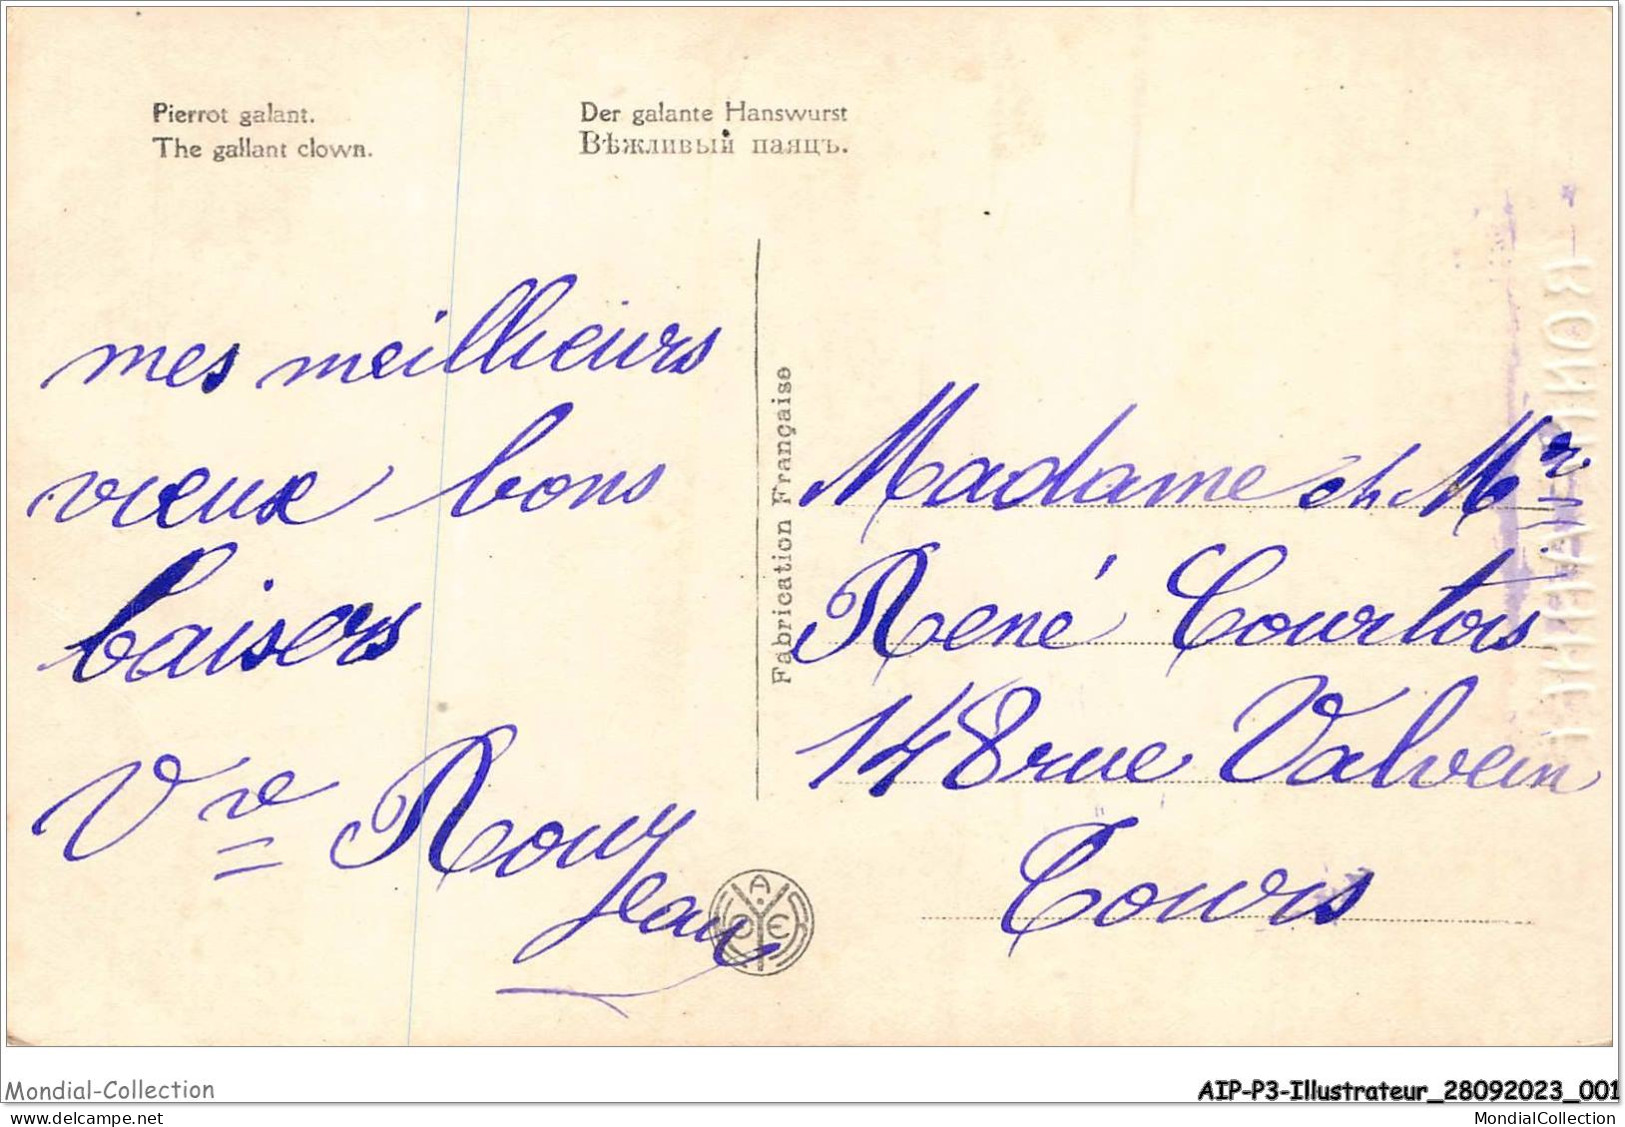 Pierrot galant.
The gallant clown.
Der galante Hanswurst
Вѣжливый паяцъ.
mes meillieurs
vœux bons
baisers
Vve Rouy
Jean
Fabrication Française
A
O E
Madame et Mr
René Courtois
148 rue Valvein
Tours
Mondial-Collection
AIP-P3-Illustrateur_28092023_001
www.delcampe.net
MondialCollection